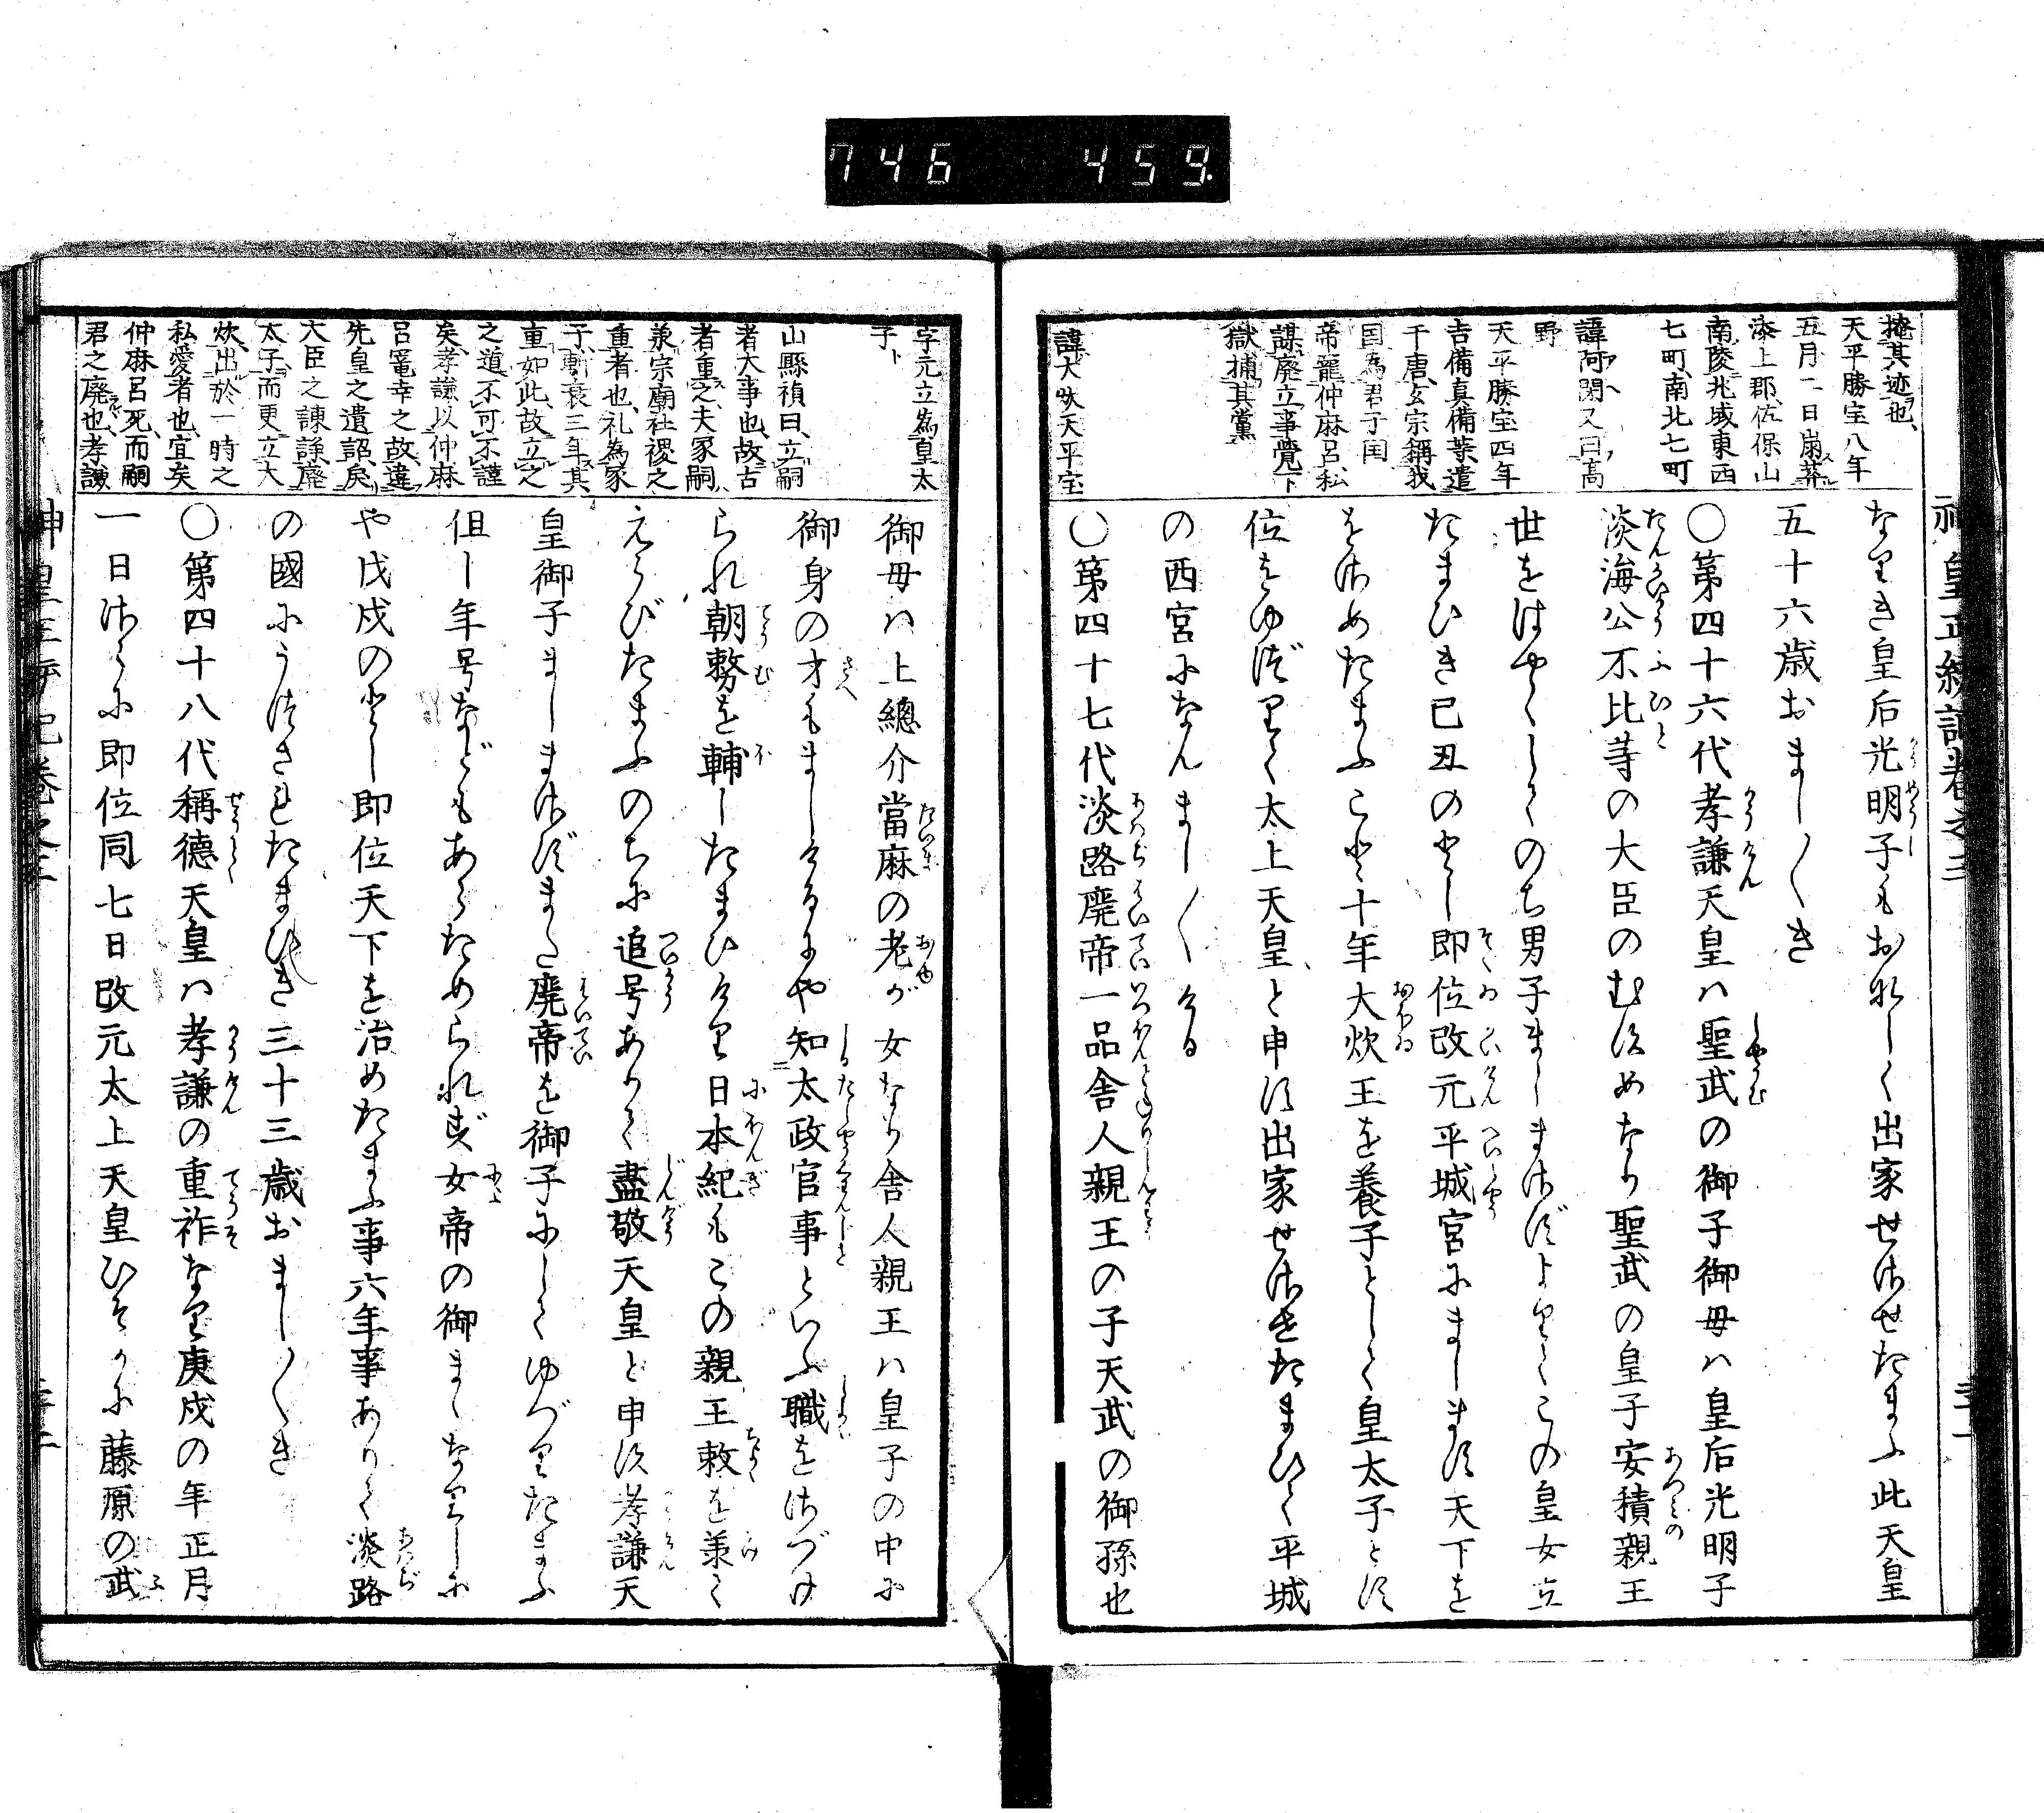 746 459
神皇正統記巻之三
掩其迹也、
天平勝宝八年
五月二日崩葬
添上郡佐保山
南陵兆域東西
七町、南北七町
諱阿閇又曰高
野
天平勝宝四年
吉備真備等遣
于唐玄宗稱我
国為君子国
帝寵仲麻呂私
謀廃立事覺下
獄捕其黨
諱大炊天平宝
なりき皇后光明子もおなしく出家せさせたまふ此天皇
五十六歳おまし〱き
〇第四十六代孝謙天皇ハ聖武の御子御母ハ皇后光明子
淡海公不比等の大臣のむすめなり聖武の皇子安積親王
世をはやくしてのち男子ましまさずよりてこの皇女立
たまひき己丑のとし即位改元平城宮にまします天下を
をさめたまふこと十年大炊王を養子として皇太子とす
位をゆづりて太上天皇と申す出家せさせたまひて平城
の西宮になんまし〱ける
〇第四十七代淡路廃帝一品舎人親王の子天武の御孫也
字元立為皇太
子
山縣禎曰、立嗣
者大事也、故古
者重之、夫冢嗣
承宗廟社稷之
重者也、礼為冢
子、斬衰三年、其
重如此、故立之
之道、不可不謹
矣、孝謙以仲麻
呂寵幸之故、違
先皇之遺詔、矣
大臣之諌諍、廃
太子、而更立大
炊、出於一時之
私愛者也、宜矣
仲麻呂死、而嗣
君之廃也、孝謙
御母ハ上總介當麻の老が女なり舎人親王ハ皇子の中に
御身の才もましけるにや知太政官事といふ職をさづけ
られ朝務を輔したまひけり日本紀もこの親王敕を承て
えらびたまふのちに追号ありて盡敬天皇と申す孝謙天
皇御子ましまさずまた廃帝を御子にしてゆづりたまふ
但し年号などもあらためられず女帝の御まゝなりしに
や戊戌のとし即位天下を治めたまふ事六年事ありて淡路
の國にうつされたまひき三十三歳おまし〱き
〇第四十八代稱徳天皇ハ孝謙の重祚なり庚戌の年正月
一日さらに即位同七日改元太上天皇ひそかに藤原の武